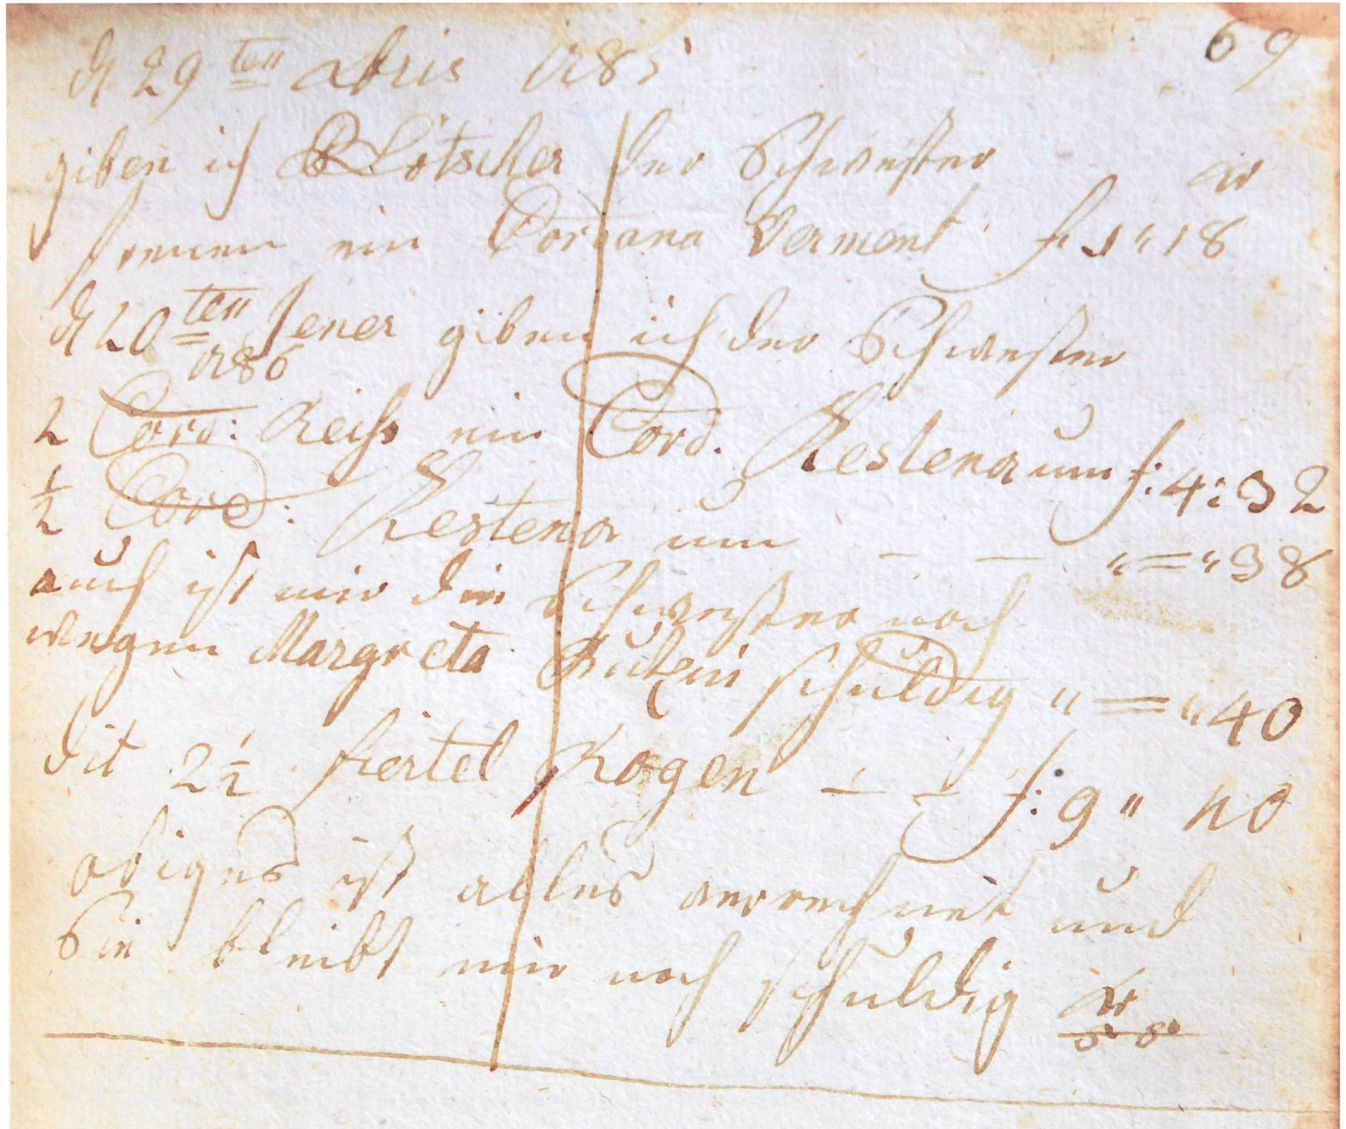 69
d 29 ten abris 1785
giben ich B Lötscher der Schwester xr
ein Cordana Verment f 1 " 18
d 20ten Jener giben ich der Schwester
1786
2 Cord: Reiss ein Cord. Kestena um f: 4: 32
1/2 Cord: Kestena um — — " = " 38
auch ist mir die Schwester noch
wegen Margreta schuldig " = " 40
dit 2 1/2 fiertel Rogen — — f: 9 " 40
obiges ist alles verrechnet und
Sie bleibt mir noch schuldig xr